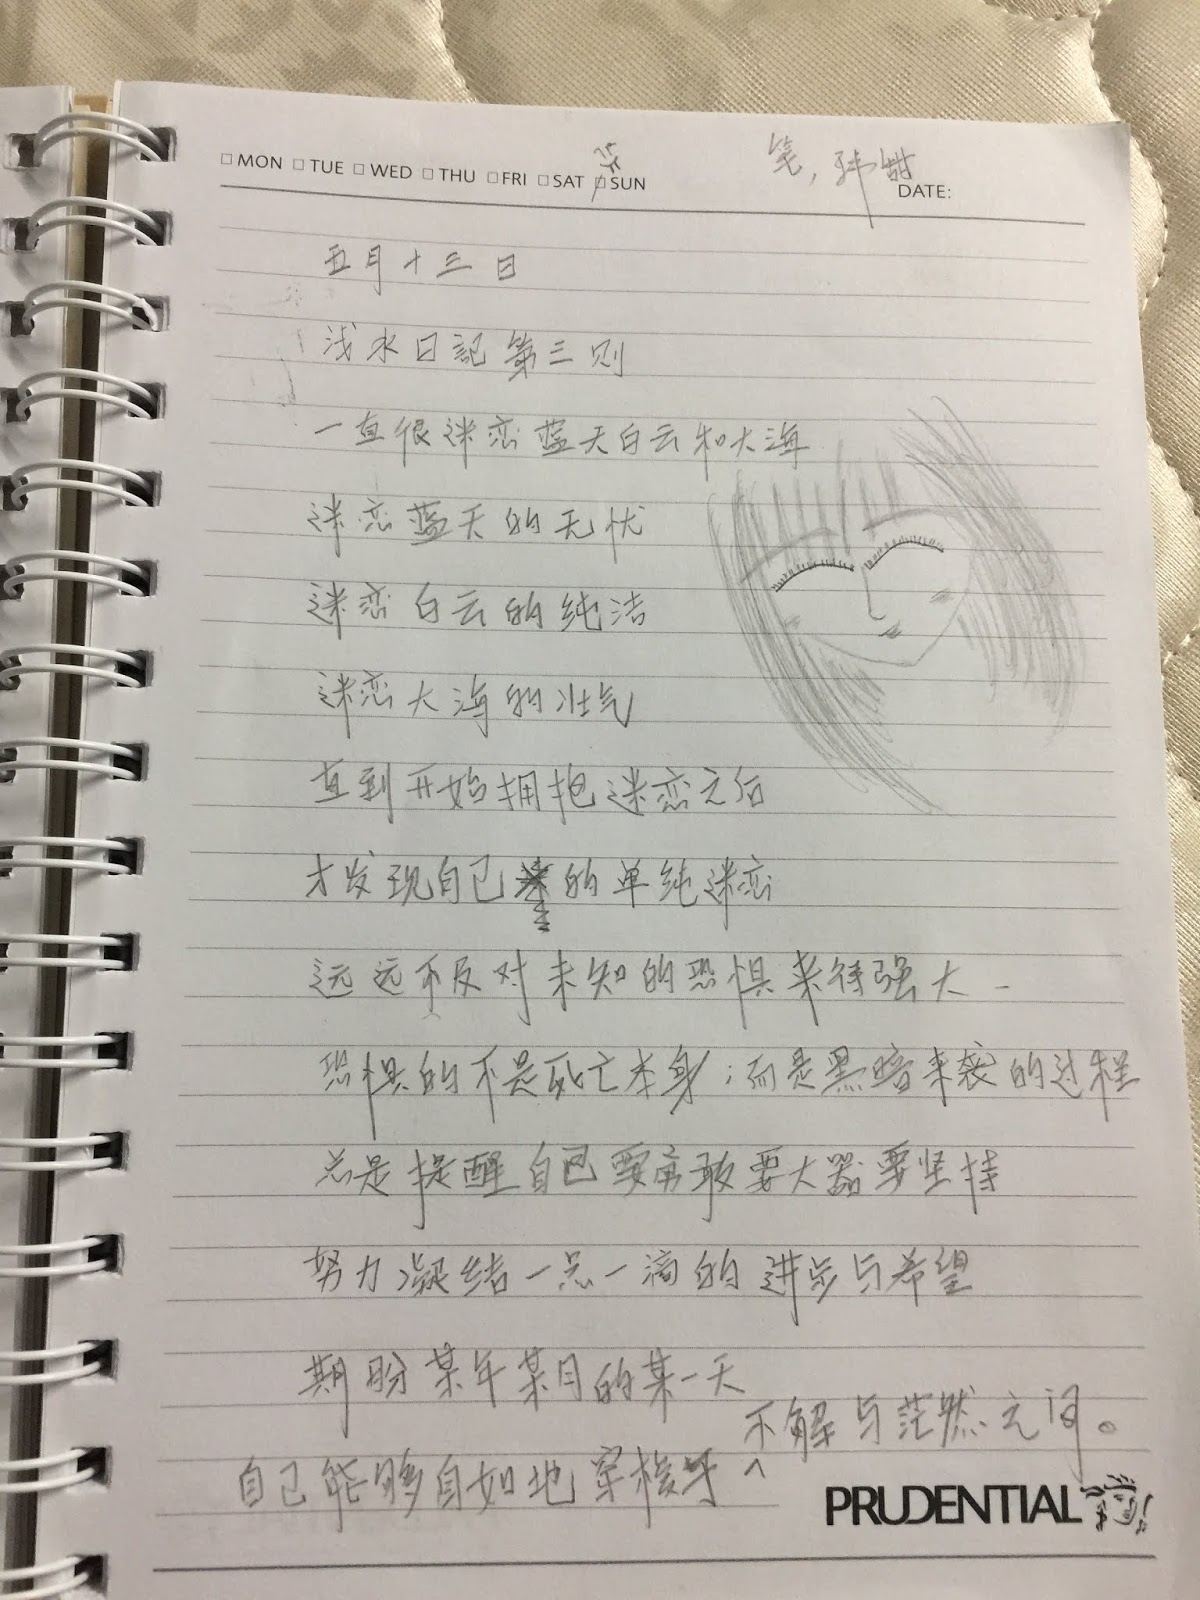 MON TUE WED THU FRI SAT SUN
笔，玮甜
DATE:
五月十三日
浅水日記第三则
一直很迷恋蓝天白云和大海
迷恋蓝天的无忧
迷恋白云的纯洁
迷恋大海的壮气
直到开始拥抱迷恋之后
才发现自己的单纯迷恋
远远不及对未知的恐惧来得强大
恐惧的不是死亡本身；而是黑暗来袭的过程
总是提醒自己要勇敢要大器要坚持
努力凝结一点一滴的进步与希望
期盼某年某月的某一天
自己能够自如地穿梭于不解与茫然之间。
PRUDENTIAL